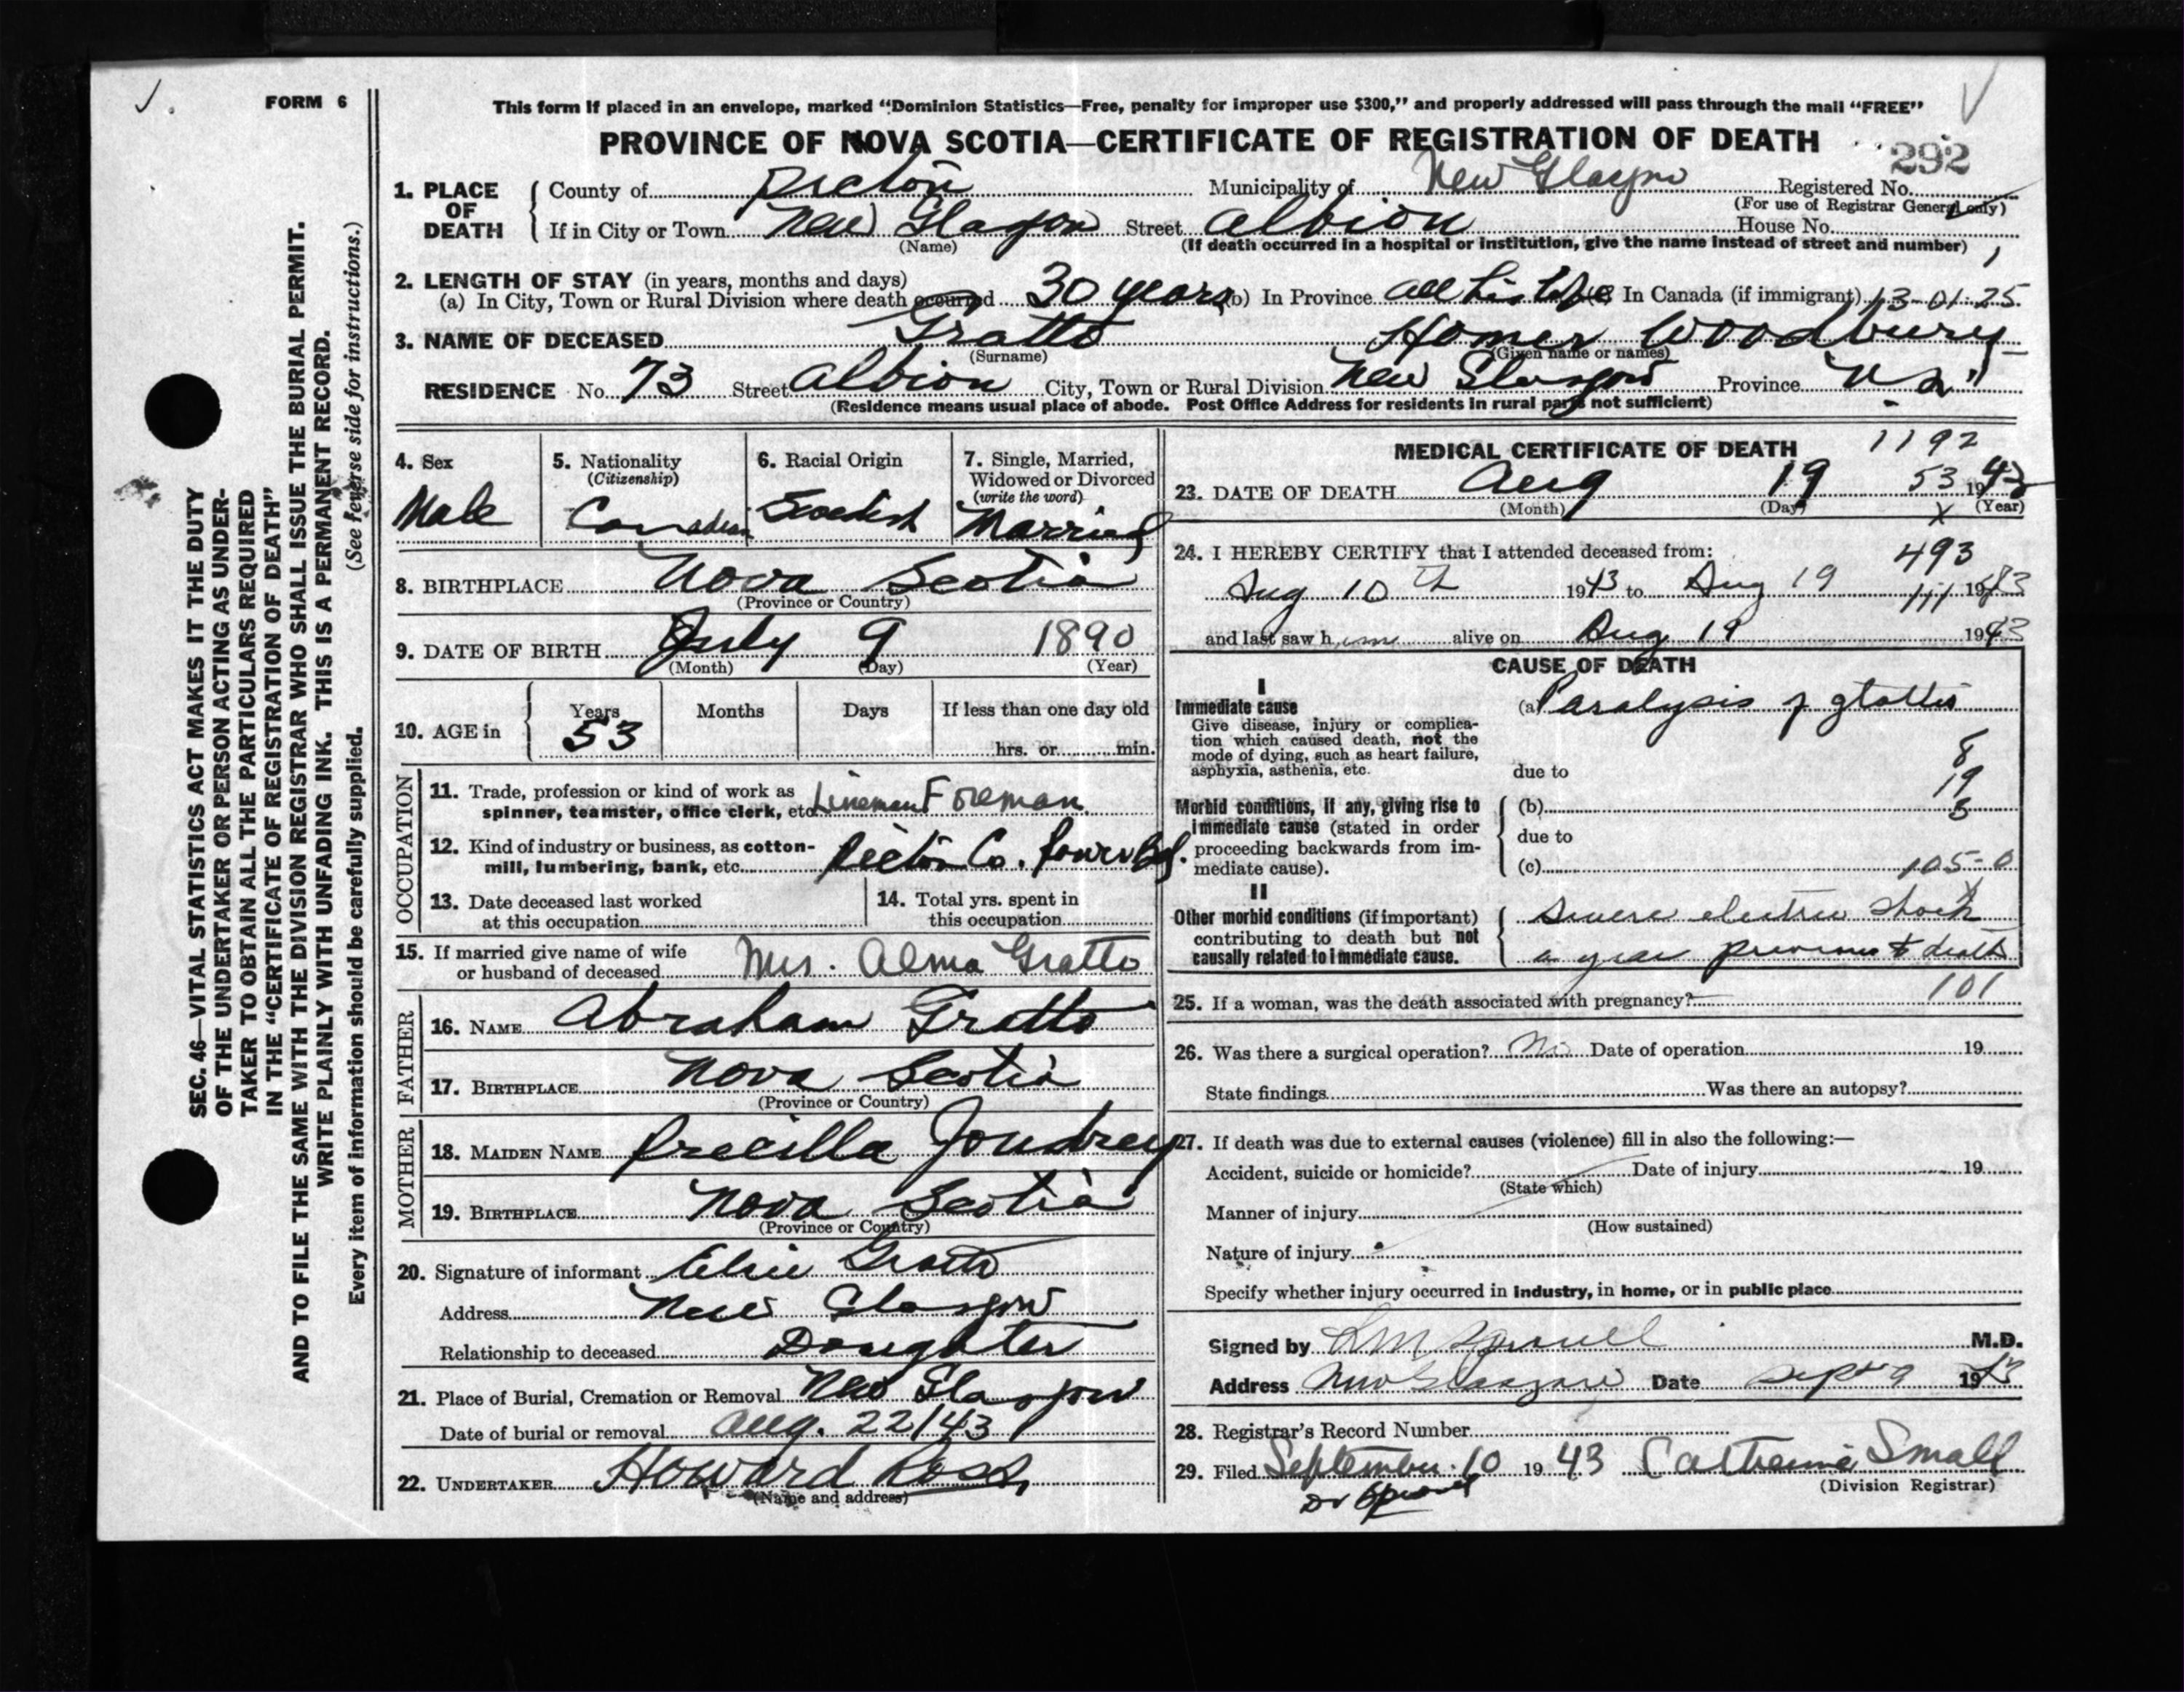 FORM 6
This form if placed in an envelope, marked “Dominion Statistics—Free, penalty for improper use $300,” and properly addressed will pass through the mail “FREE”
PROVINCE OF NOVA SCOTIA—CERTIFICATE OF REGISTRATION OF DEATH
292
1. PLACE OF DEATH
County of Pictou Municipality of New Glasgow Registered No.
(For use of Registrar General only)
If in City or Town New Glasgow Street Albion House No.
(Name) (If death occurred in a hospital or institution, give the name instead of street and number)
2. LENGTH OF STAY (in years, months and days)
(a) In City, Town or Rural Division where death occurred 30 years (b) In Province all his life In Canada (if immigrant) 13-01-25
3. NAME OF DECEASED Gratto Homer Woodbury
(Surname) (Given name or names)
RESIDENCE No. 73 Street Albion City, Town or Rural Division New Glasgow Province N.S.
(Residence means usual place of abode. Post Office Address for residents in rural parts not sufficient)
4. Sex Male
5. Nationality (Citizenship) Canadian
6. Racial Origin Swedish
7. Single, Married, Widowed or Divorced (write the word) Married
8. BIRTHPLACE Nova Scotia
(Province or Country)
9. DATE OF BIRTH July 9 1890
(Month) (Day) (Year)
10. AGE in Years 53 Months Days If less than one day old
hrs. or min.
OCCUPATION
11. Trade, profession or kind of work as
spinner, teamster, office clerk, etc. Lineman Foreman
12. Kind of industry or business, as cotton-
mill, lumbering, bank, etc. Pictou Co. Power Bd.
13. Date deceased last worked
at this occupation
14. Total yrs. spent in
this occupation
15. If married give name of wife
or husband of deceased Mrs. Alma Gratto
FATHER
16. NAME Abraham Gratto
17. BIRTHPLACE Nova Scotia
(Province or Country)
MOTHER
18. MAIDEN NAME Precilla Joudrey
19. BIRTHPLACE Nova Scotia
(Province or Country)
20. Signature of informant Elsie Gratto
Address New Glasgow
Relationship to deceased Daughter
21. Place of Burial, Cremation or Removal New Glasgow
Date of burial or removal Aug. 22/43
22. UNDERTAKER Howard Ross
(Name and address)
MEDICAL CERTIFICATE OF DEATH 1192
23. DATE OF DEATH Aug 19 53 1943
(Month) (Day) (Year)
X
24. I HEREBY CERTIFY that I attended deceased from:
493
Aug 10th 1943 to Aug 19 1943
and last saw him alive on Aug 19 1943
CAUSE OF DEATH
I
Immediate cause
Give disease, injury or complica-
tion which caused death, not the
mode of dying, such as heart failure,
asphyxia, asthenia, etc.
(a) Paralysis of glottis
8
due to
19
Morbid conditions, if any, giving rise to
immediate cause (stated in order
proceeding backwards from im-
mediate cause).
(b)
due to
(c) 105-0
II
Other morbid conditions (if important)
contributing to death but not
causally related to immediate cause.
Severe electric shock
a year previous to death
101
25. If a woman, was the death associated with pregnancy?
26. Was there a surgical operation? No Date of operation 19
State findings Was there an autopsy?
27. If death was due to external causes (violence) fill in also the following:—
Accident, suicide or homicide? Date of injury 19
(State which)
Manner of injury
(How sustained)
Nature of injury
Specify whether injury occurred in industry, in home, or in public place
Signed by M.D.
Address New Glasgow Date Sept 9 1943
28. Registrar's Record Number
29. Filed September 10 1943 Catherine Small
(Division Registrar)
SEC. 46—VITAL STATISTICS ACT MAKES IT THE DUTY
OF THE UNDERTAKER OR PERSON ACTING AS UNDER-
TAKER TO OBTAIN ALL THE PARTICULARS REQUIRED
IN THE “CERTIFICATE OF REGISTRATION OF DEATH”
AND TO FILE THE SAME WITH THE DIVISION REGISTRAR WHO SHALL ISSUE THE BURIAL PERMIT.
WRITE PLAINLY WITH UNFADING INK. THIS IS A PERMANENT RECORD.
Every item of information should be carefully supplied. (See reverse side for instructions.)